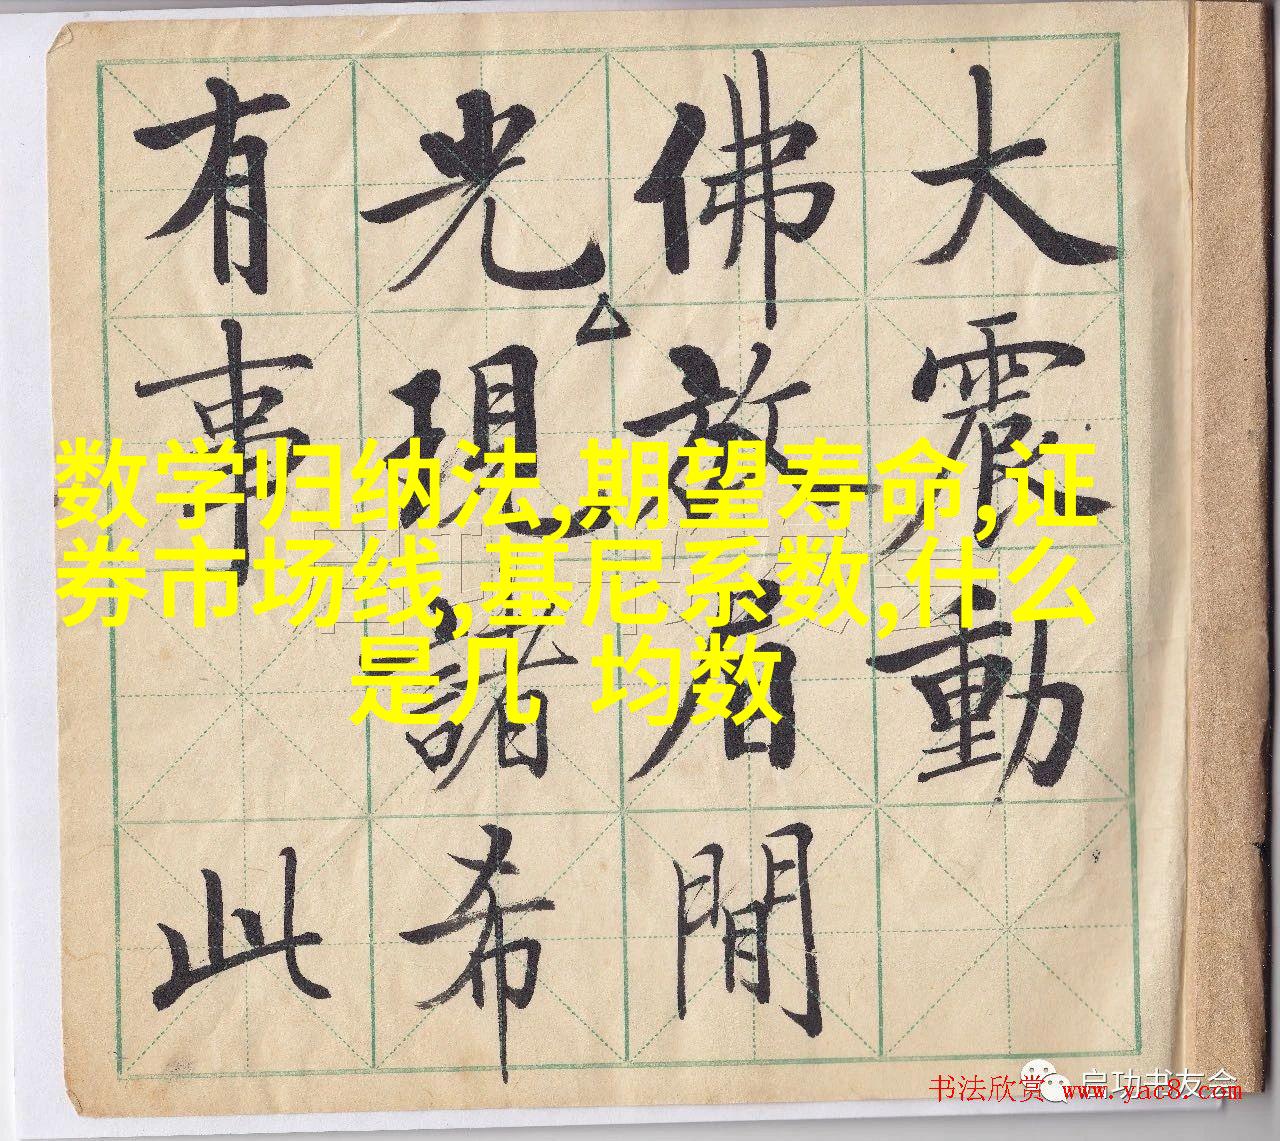 大震動
佛放眉間
光現諸希
有事此
数学归纳法,期望寿命,证
券市场线,基尼系数,什么
是几 均数
启功书友会
书法欣赏 www.yac8.com